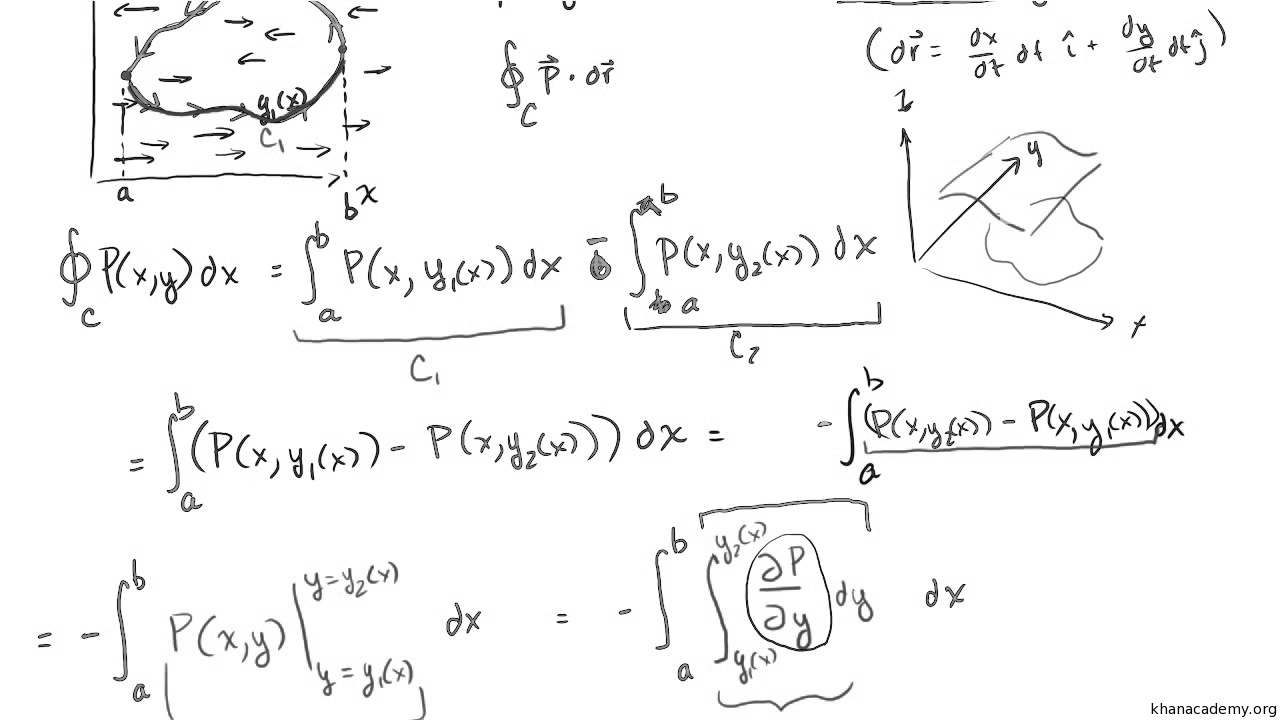 (dr⃗ = dx/dt dt î + dy/dt dt ĵ)
∮_C P⃗ · dr⃗
y₁(x)
C₁
a
b
x
y
x
∮_C P(x,y) dx = ∫_a^b P(x, y₁(x)) dx - ∫_a^b P(x, y₂(x)) dx
C₁
C₂
= ∫_a^b (P(x, y₁(x)) - P(x, y₂(x))) dx = - ∫_a^b (P(x, y₂(x)) - P(x, y₁(x))) dx
= - ∫_a^b P(x,y) |_{y = y₁(x)}^{y = y₂(x)} dx = - ∫_a^b ∫_{y₁(x)}^{y₂(x)} ∂P/∂y dy dx
khanacademy.org